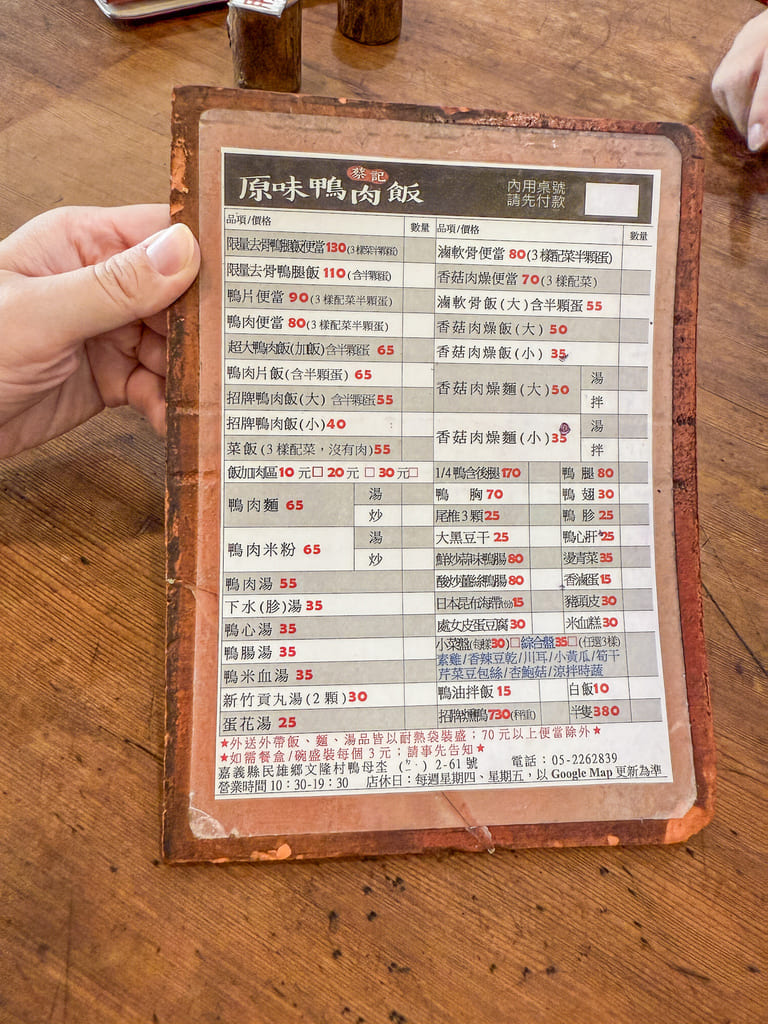 蔡記
原味鴨肉飯
內用桌號
請先付款
品項/價格 數量
限量去骨鴨腿飯便當130(3樣配菜半顆蛋)
限量去骨鴨腿飯 110(含半顆蛋)
鴨片便當 90(3樣配菜半顆蛋)
鴨肉便當 80(3樣配菜半顆蛋)
超大鴨肉飯(加飯)含半顆蛋 65
鴨肉片飯(含半顆蛋) 65
招牌鴨肉飯(大) 含半顆蛋55
招牌鴨肉飯(小)40
菜飯(3樣配菜,沒有肉)55
飯加肉區10元□ 20元 □ 30元□
鴨肉麵 65 湯
炒
鴨肉米粉 65 湯
炒
鴨肉湯 55
下水(胗)湯 35
鴨心湯 35
鴨腸湯 35
鴨米血湯 35
新竹貢丸湯(2顆)30
蛋花湯 25
品項/價格 數量
滷軟骨便當 80(3樣配菜半顆蛋)
香菇肉燥便當 70(3樣配菜)
滷軟骨飯(大)含半顆蛋 55
香菇肉燥飯(大) 50
香菇肉燥飯(小) 35
香菇肉燥麵(大)50 湯
拌
香菇肉燥麵(小)35 湯
拌
1/4鴨含後腿170 鴨 腿 80
鴨 胸 70 鴨 翅 30
尾椎3顆25 鴨 胗 25
大黑豆干 25 鴨心肝 25
鮮炒蒜味鴨腸80 燙青菜 35
酸炒薑絲鴨腸80 香滷蛋15
日本昆布海帶15 豬頭皮30
處女皮蛋豆腐30 米血糕30
小菜盤(每樣30)□綜合盤35□(任選3樣)
素雞/香辣豆乾/川耳/小黃瓜/筍干
芹菜豆包絲/杏鮑菇/涼拌時蔬
鴨油拌飯 15 白飯10
招牌燻鴨730(秤重) 半隻380
★外送外帶飯、麵、湯品皆以耐熱袋裝盛;70元以上便當除外★
★如需餐盒/碗盛裝每個3元;請事先告知★
嘉義縣民雄鄉文隆村鴨母坔(ㄌㄢˋ)2-61號 電話:05-2262839
營業時間10:30-19:30 店休日:每週星期四、星期五,以Google Map更新為準